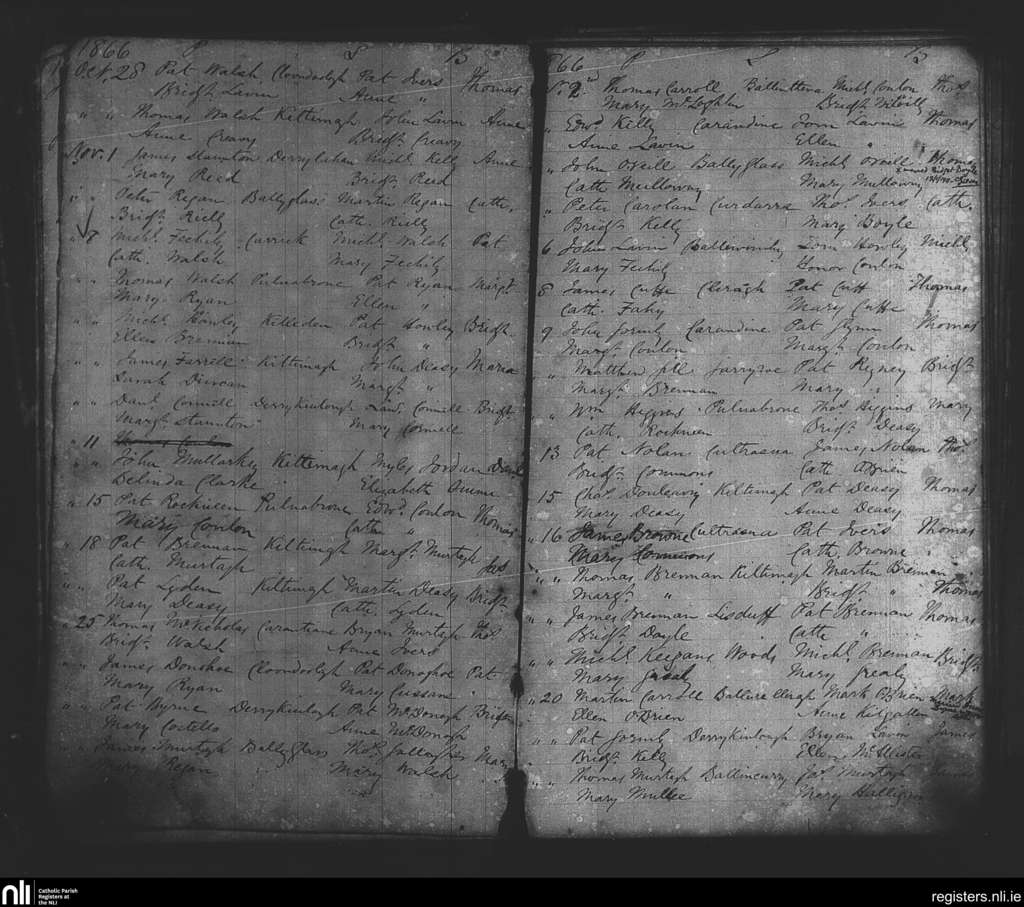 1866 P S B
Oct. 28 Pat Walsh Cloondoolgh Pat Ivers Thomas
Bridgt Lavin Anne "
" " Thomas Walsh Kiltimagh John Lavin Anne
Anne Creavy Bridgt Creavy
Nov. 1 James Staunton Derrylahan Michl Kelly Anne
Mary Reed Bridgt Reed
" " Peter Regan Ballyglass Martin Regan Cath.
Bridgt Rielly Cath. Rielly
" 8 Michl Feehily Carrick Michl Walsh Pat
Cath. Walsh Mary Feehily
" " Thomas Walsh Pulnabrone Pat Ryan Margt
Mary Ryan Ellen "
" " Michl Howley Killeden Pat Howley Bridgt
Ellen Brennan Bridgt "
" " James Farrell Kiltimagh John Deasy Maria
Sarah Duncan Margt "
" " Danl Connell Derrykinlough Connell Bridgt
Margt Staunton Mary Connell
" 11
" " John Mullarkey Kiltimagh Myles Jordan
Belinda Clarke Elizabeth
" 15 Pat Rockineen Pulnabrone Edwd Conlon Thomas
Mary Conlon Cath "
" 18 Pat Brennan Kiltimagh Margt Murtagh Jas
Cath. Murtagh
" " Pat Lyden Kiltimagh Martin Deasy Bridgt
Mary Deasy Cath. Lyden
" 25 Thomas McNicholas Carantiane Bryan Murtagh Thos
Bridgt Walsh Anne Ivers
" " James Donohoe Cloondolgh Pat Donoghoe Pat
Mary Ryan Mary Cussane
" " Pat Byrne Derrykinlogh Pat McDonogh Bridgt
Mary Costello Anne McDonogh
" " James Murtagh Ballyglass Thos Gallagher Mary
Mary Regan Mary Walsh
866 P S B
2 Thomas Carroll Michl Conlon Thos
Mary McLoghlin Bridgt
" Edwd Kelly Carandine Tom Lavin Thomas
Anne Lavin Ellen "
" John ONeill Ballyglass Michl ONeill Thomas
Cath Mullowny Mary Mullowny
" Peter Carolan Curdarra Thos Ivers Cath.
Bridgt Kelly Mary Boyle
6 John Lavin Tom Howley Michl
Mary Feehily Honor Conlon
8 James Cuffe Cleragh Pat Cuff Thomas
Cath. Fahy Mary Cuffe
9 John Carandine Pat Flynn Thomas
Margt Conlon Margt Conlon
" Matthew Pat Rigney Bridgt
Margt Brennan Mary "
" Wm Higgins Pulnabrone Thos Higgins Mary
Cath. Rockineen Bridgt Deasy
13 Pat Nolan Cultrasna James Nolan Thos
Bridgt Commons Cath OBrien
15 Chas Dunleavy Kiltimagh Pat Deasy Thomas
Mary Deasy Anne Deasy
" 16 James Browne Cultrasna Pat Ivers Thomas
Mary Commons Cath. Browne
" " Thomas Brennan Kiltimagh Martin Brennan
Margt " Bridgt " Thomas
" " James Brennan Lisduff Pat Brennan Thomas
Bridgt Doyle Cath "
" " Michl Keegans Woods Michl Brennan Bridgt
Mary Grealy Mary Grealy
" 20 Martin Carroll Mark OBrien Mark
Ellen OBrien Anne Kilgallen
" " Pat Derrykinlough Bryan Lavin James
Bridgt Kelly Ellen
" " Thomas Murtagh Ballincurry Pat Murtagh James
Mary Mullee Mary Halligan
nli Catholic Parish
Registers at
the NLI
registers.nli.ie